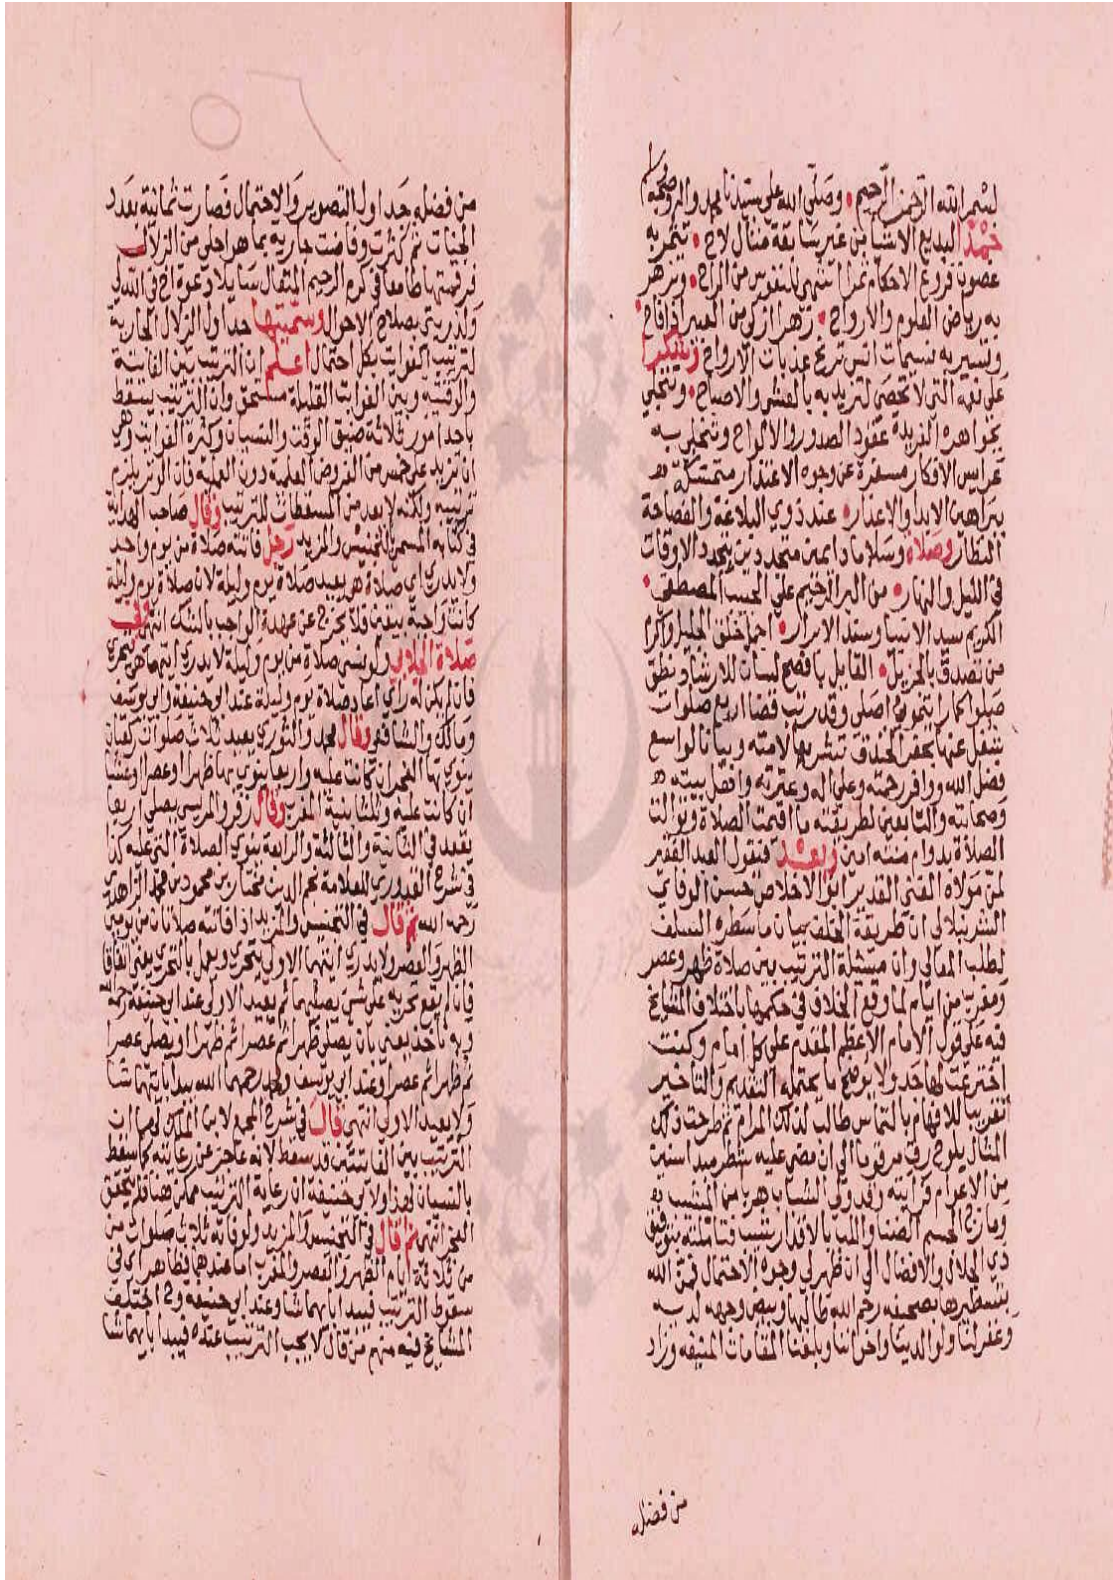 بسم الله الرحمن الرحيم وصلى الله على سيدنا محمد واله وصحبه وسلم
حمد البديع الاشيا من غير سابقة مثال لاح
غصون فروع الاحكام ثمرا تشتهي للنفوس من الراح ويزهر
به رياض العلوم والارواح زهرا ازكى من العبير اذا فاح
وتسير به نسمات انس ترنح عذبات الارواح وشكرا
على نعمه التي لا تحصى لتزيد به بالعشي والاصباح وينجلي
بجواهره الفريدة عقود الصدور والالواح وتنجلي به
عرايس الافكار مسفرة عن وجوه الاعتذار متمسكة
ببراهين الابدا والاعذار عند ذوي البلاغة والفصاحة
النظار وصلاة وسلاما دايمين متجددين بتجدد الاوقات
في الليل والنهار من البر الرحيم على الحبيب المصطفى
الكريم سيد الانبيا وسند الابرار اجمل خلق الجليل واكرم
من تصدق بالجزيل القايل بافصح لسان للارشاد ونطق
صلوا كما رايتموني اصلي وقد رتب قضا اربع صلوات
شغل عنها بحفر الخندق تشريعا لامته وبيانا لواسع
فضل الله ووافر رحمته وعلى اله وعترته وافضل بيته
وصحابته والتابعين لطريقته ما اقيمت الصلاة وتوالت
الصلاة بدوام منته امين وبعد فيقول العبد الفقير
لمن مولاه الغني القدير ابو الاخلاص حسن الوفاي
الشرنبلالي ان طريقة الخلف بيان ما سطره السلف
لطلب المعالي وان مسئلة الترتيب بين صلاة ظهر وعصر
ومغرب من ايام لما وقع الخلاف في حكمها باختلاف المشايخ
فيه على قول الامام الاعظم المقدم على كل امام وكنت
اخترعت لها جدولا يوضح ما يحتمله التقديم والتاخير
تقريبا للافهام بالتماس طالب لذلك المرام ثم طرحت ذلك
المثال يلوح في الى ان مضى عليه شطر
من الاعوام قرايته وقد ولى الشباب هربا من المشيب
ومازج الجسم الضنا والمت بالاقدار فتاملته بتوفيق
ذي الجلال والافضال الى ان ظهر لي وجوه الاحتمال فمن الله
بتسطيرها بصحيفه رحم الله طالبها وبيض وجهه لديه
وغفر لنا ولوالدينا واخواننا وبلغنا المقامات المنيفه وزاد
من فضله
من فضله جداول التصوير والاحتمال فصارت ثمانية بعدد
الجنات ثم كثرت وفاضت جاريه بما هو احلى من الزلال
فرقمتها طامعا في كرم الرحيم المتعال سايلا دعوة اخ في الله لي
ولذريتي بصلاح الاحوال وسميتها جداول الزلال الجارية
لترتيب الفوايت بكل احتمال اعلم ان الترتيب بين الفايتة
والوقتية وبين الفوايت القليلة مستحق وان الترتيب يسقط
باحد امور ثلاثة ضيق الوقت والنسيان وكثرة الفوايت وهي
ان تزيد على خمس من الفروض العلمية دون العملية فان الوتر يلزم
ترتيبه ولكنه لا يعد من المسقطات للترتيب وقال صاحب الهداية
في كتابه المسمى التجنيس والمزيد رجل فاتته صلاة من يوم واحد
ولا يدري اي صلاة هي يعيد صلاة يوم وليلة لان صلاة يوم وليلة
كانت واجبة بيقين فلا يخرج عن عهدة الواجب بالشك انتهى وفي
صلاة الجلابي ولو نسي صلاة من يوم وليلة لا يدري ايتها هي يتحرى
فان لم يكن له راي اعاد صلاة يوم وليلة عند ابي حنيفة وابي يوسف
ومالك والشافعي وقال محمد والثوري يعيد ثلاث صلوات ركعتان
ينوي بهما الفجر ان كانت عليه واربعا ينوي بها ظهرا وعصرا وعشا
ان كانت عليه وثلثا بنية المغرب وقال زفر والمريسي يصلي اربعا
يقعد في الثانية والثالثة والرابعة ينوي الصلاة التي عليه كذا
في شرح القدوري للعلامة نجم الدين مختار بن محمود بن محمد الزاهدي
رحمه الله ثم قال في التجنيس والمزيد اذا فاتته صلاتان من يومين
الظهر والعصر ولا يدري ايتهما الاولى يتحرى ويعمل بالتحري يعني اتفاقا
فان لم يقع تحريه على شي يصليهما ثم يعيد الاولى عند ابي حنيفة رحمه
وبه ناخذ يعني بان يصلي ظهرا ثم عصرا ثم ظهرا او يصلي عصرا
ثم ظهرا ثم عصرا وعند ابي يوسف ومحمد رحمهما الله يبدا بايتهما شا
ولا يعيد الاولى انتهى قال في شرح المجمع لابن الملك لهما ان
الترتيب بين الفايتتين قد سقط لانه عاجز عن رعايته كما سقط
بالنسيان لعجزه ولابي حنيفة ان رعاية الترتيب ممكن هنا فلم يتحقق
العجز انتهى ثم قال في التجنيس والمزيد ولو فاته ثلاث صلوات من
من ثلاثة ايام الظهر والعصر والمغرب اما عندهما فظاهر اي في
سقوط الترتيب فيبدا بايهما شا وعند ابي حنيفة رح اختلف
المشايخ فيه منهم من قال لا يجب الترتيب عنده فيبدا بايهما شا